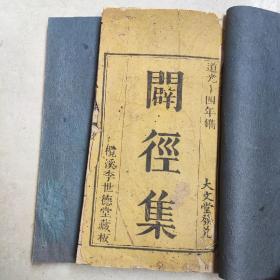 道光十四年鐫
大文堂發兌
闢徑集
欖溪李世德堂藏板